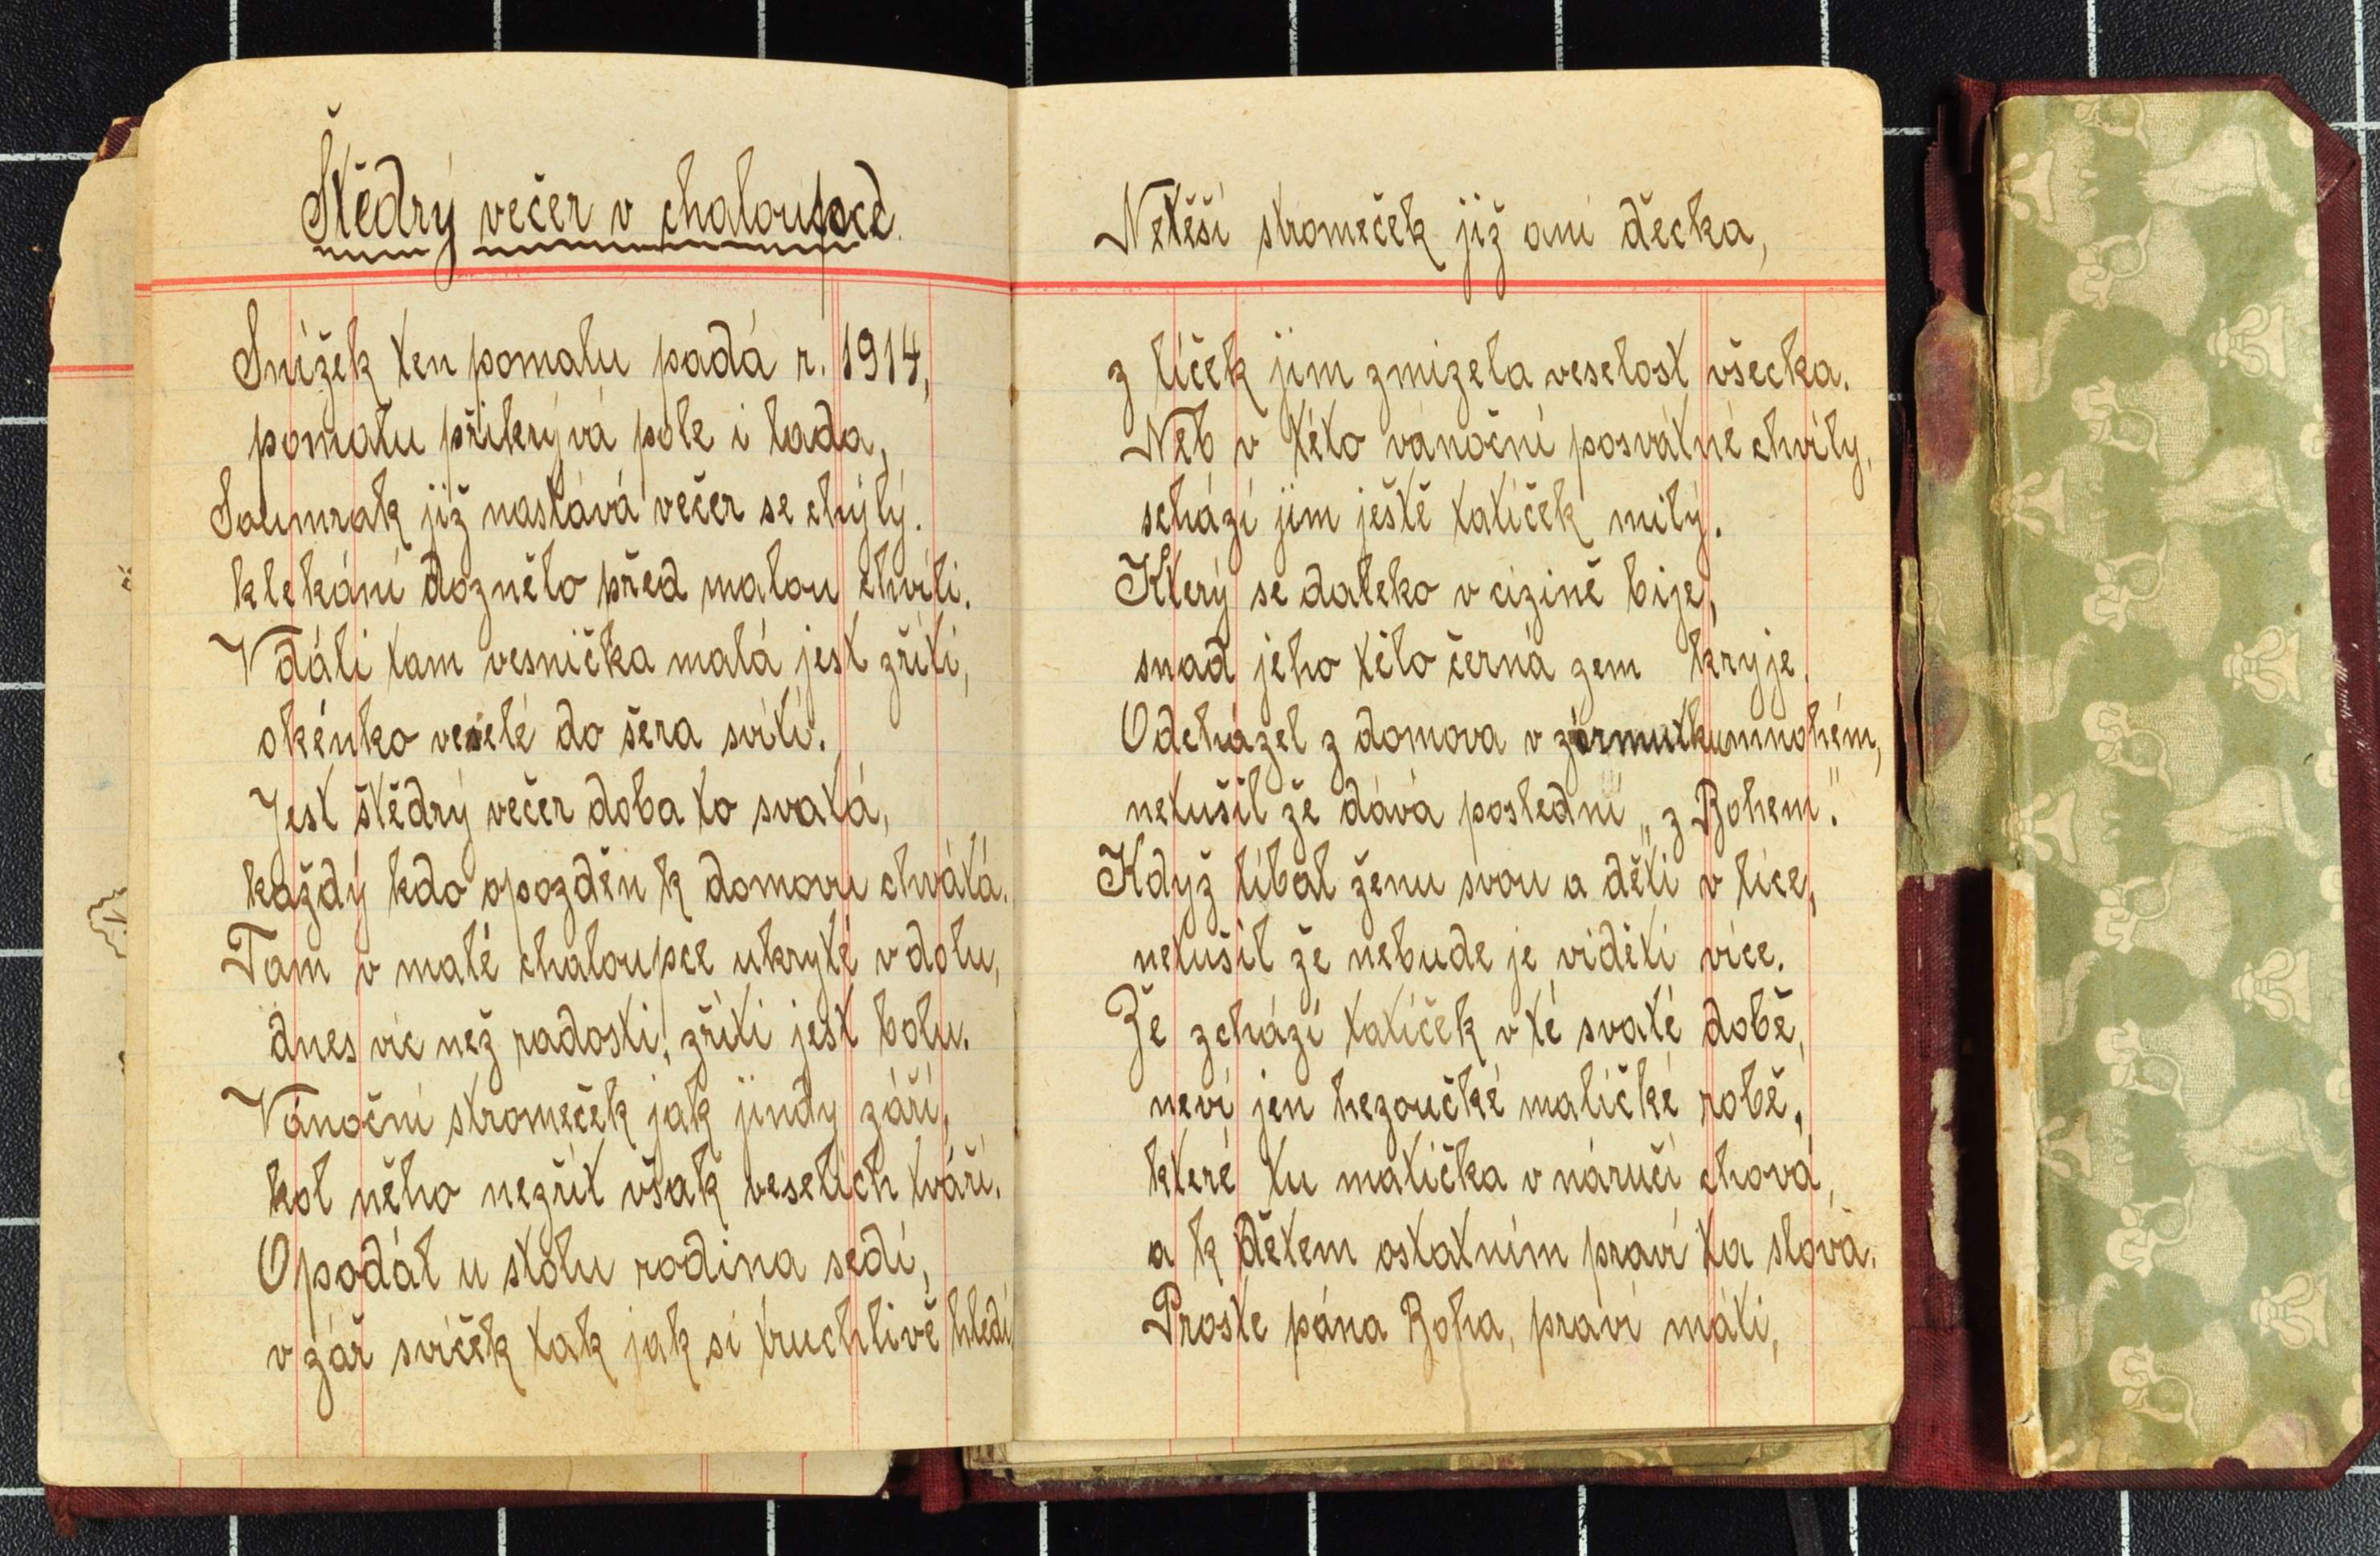 Štědrý večer v chaloupce.
Snížek ten pomalu padá r. 1914,
pomalu přikrývá pole i lada,
Soumrak již nastává večer se chýlý.
klekání doznělo před malou chvíli.
V dáli tam vesnička malá jest zříti,
okénko veselé do šera svítí.
Jest štědrý večer doba to svatá,
každý kdo opozděn k domovu chvátá.
Tam v malé chaloupce ukryté v dolu,
dnes víc než radosti, zříti jest bolu.
Vánoční stromeček jak jindy září,
kol něho nezřít však veselích tváří.
Opodál u stolu rodina sedí,
v zář svíček tak jak si truchlivě hledí
Netěší stromeček již ani děcka,
z líček jim zmizela veselost všecka.
Neb v této vánoční posvátné chvíly,
schází jim ještě tatíček milý.
Který se daleko v cizině bije,
snad jeho tělo černá zem kryje.
Odcházel z domova v zármutku mnohém,
netušil že dává poslední „z Bohem".
Když líbal ženu svou a děti v líce,
netušil že nebude je viděti více.
Že zchází tatíček v té svaté době,
neví jen hezoučké maličké robě,
které tu matička v náručí chová,
a k dětem ostatním praví ta slova.
Proste pána Boha, praví máti,